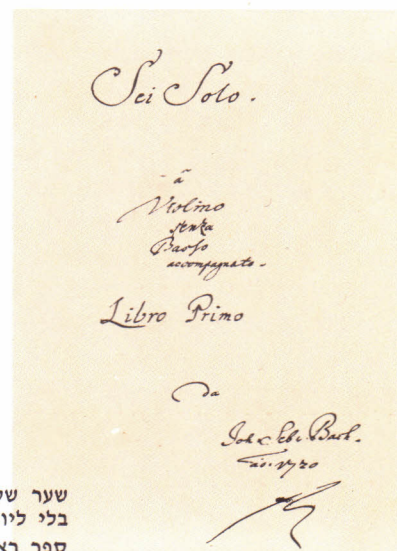 Sei Solo.
â
Violino
senza
Basso
accompagnato.
Libro Primo
da
Joh. Seb. Bach.
ao. 1720
שער
בלי
ספר